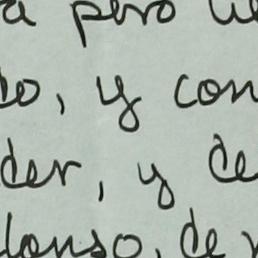 a pero
do, y con
der, y de
lonso, de